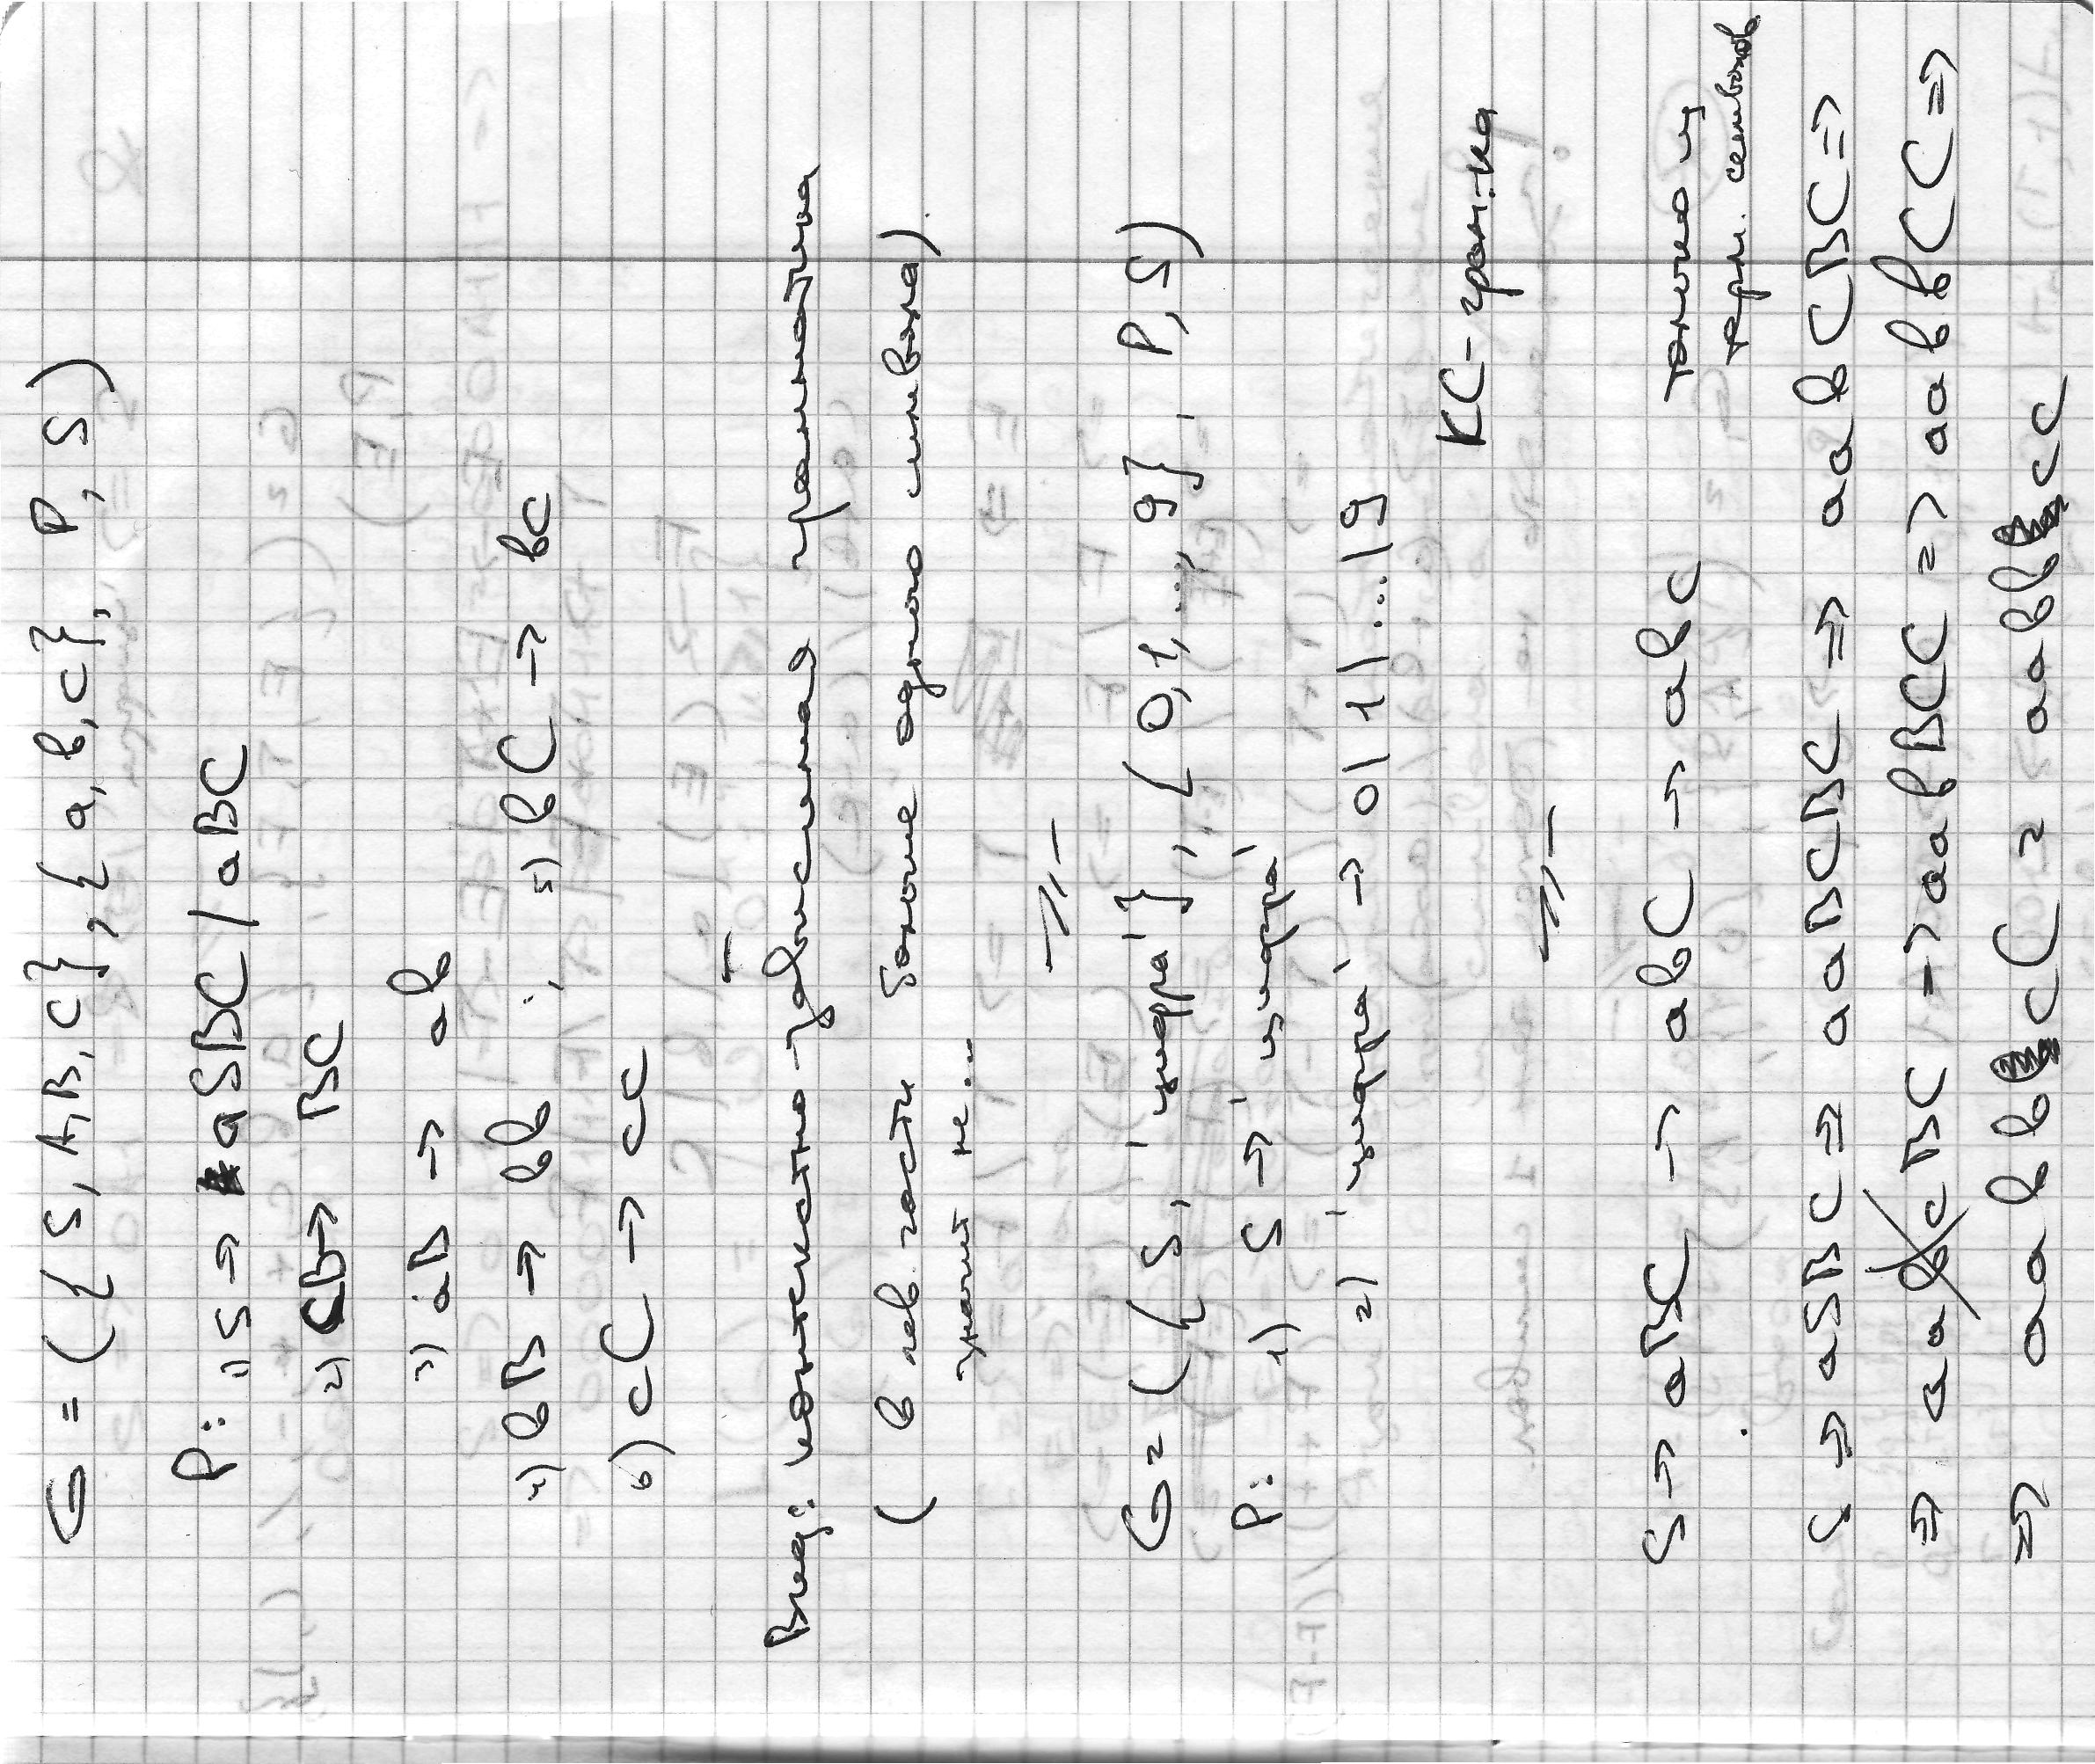 G = ({S, A, B, C}, {a, b, c}, P, S)
P: 1) S → aSBC / aBC
2) CB → BC
3) aB → ab
4) bB → bb ; 5) bC → bc
6) cC → cc
Вид: контекстно-зависимая грамматика
(в лев. части больше одного символа).
не...
G = ({S, 'цифра'}, {0, 1, ..., 9}, P, S)
P: 1) S → 'цифра'
2) 'цифра' → 0 | 1 | ... | 9
КС-грам-ка
S → aBC → abC → abc только из
терм. символов
S → aSBC ⇒ aaBCBC ⇒ aabCBC ⇒
⇒ aabBCC ⇒ aabbCC ⇒
⇒ aabbcC = aabbcc